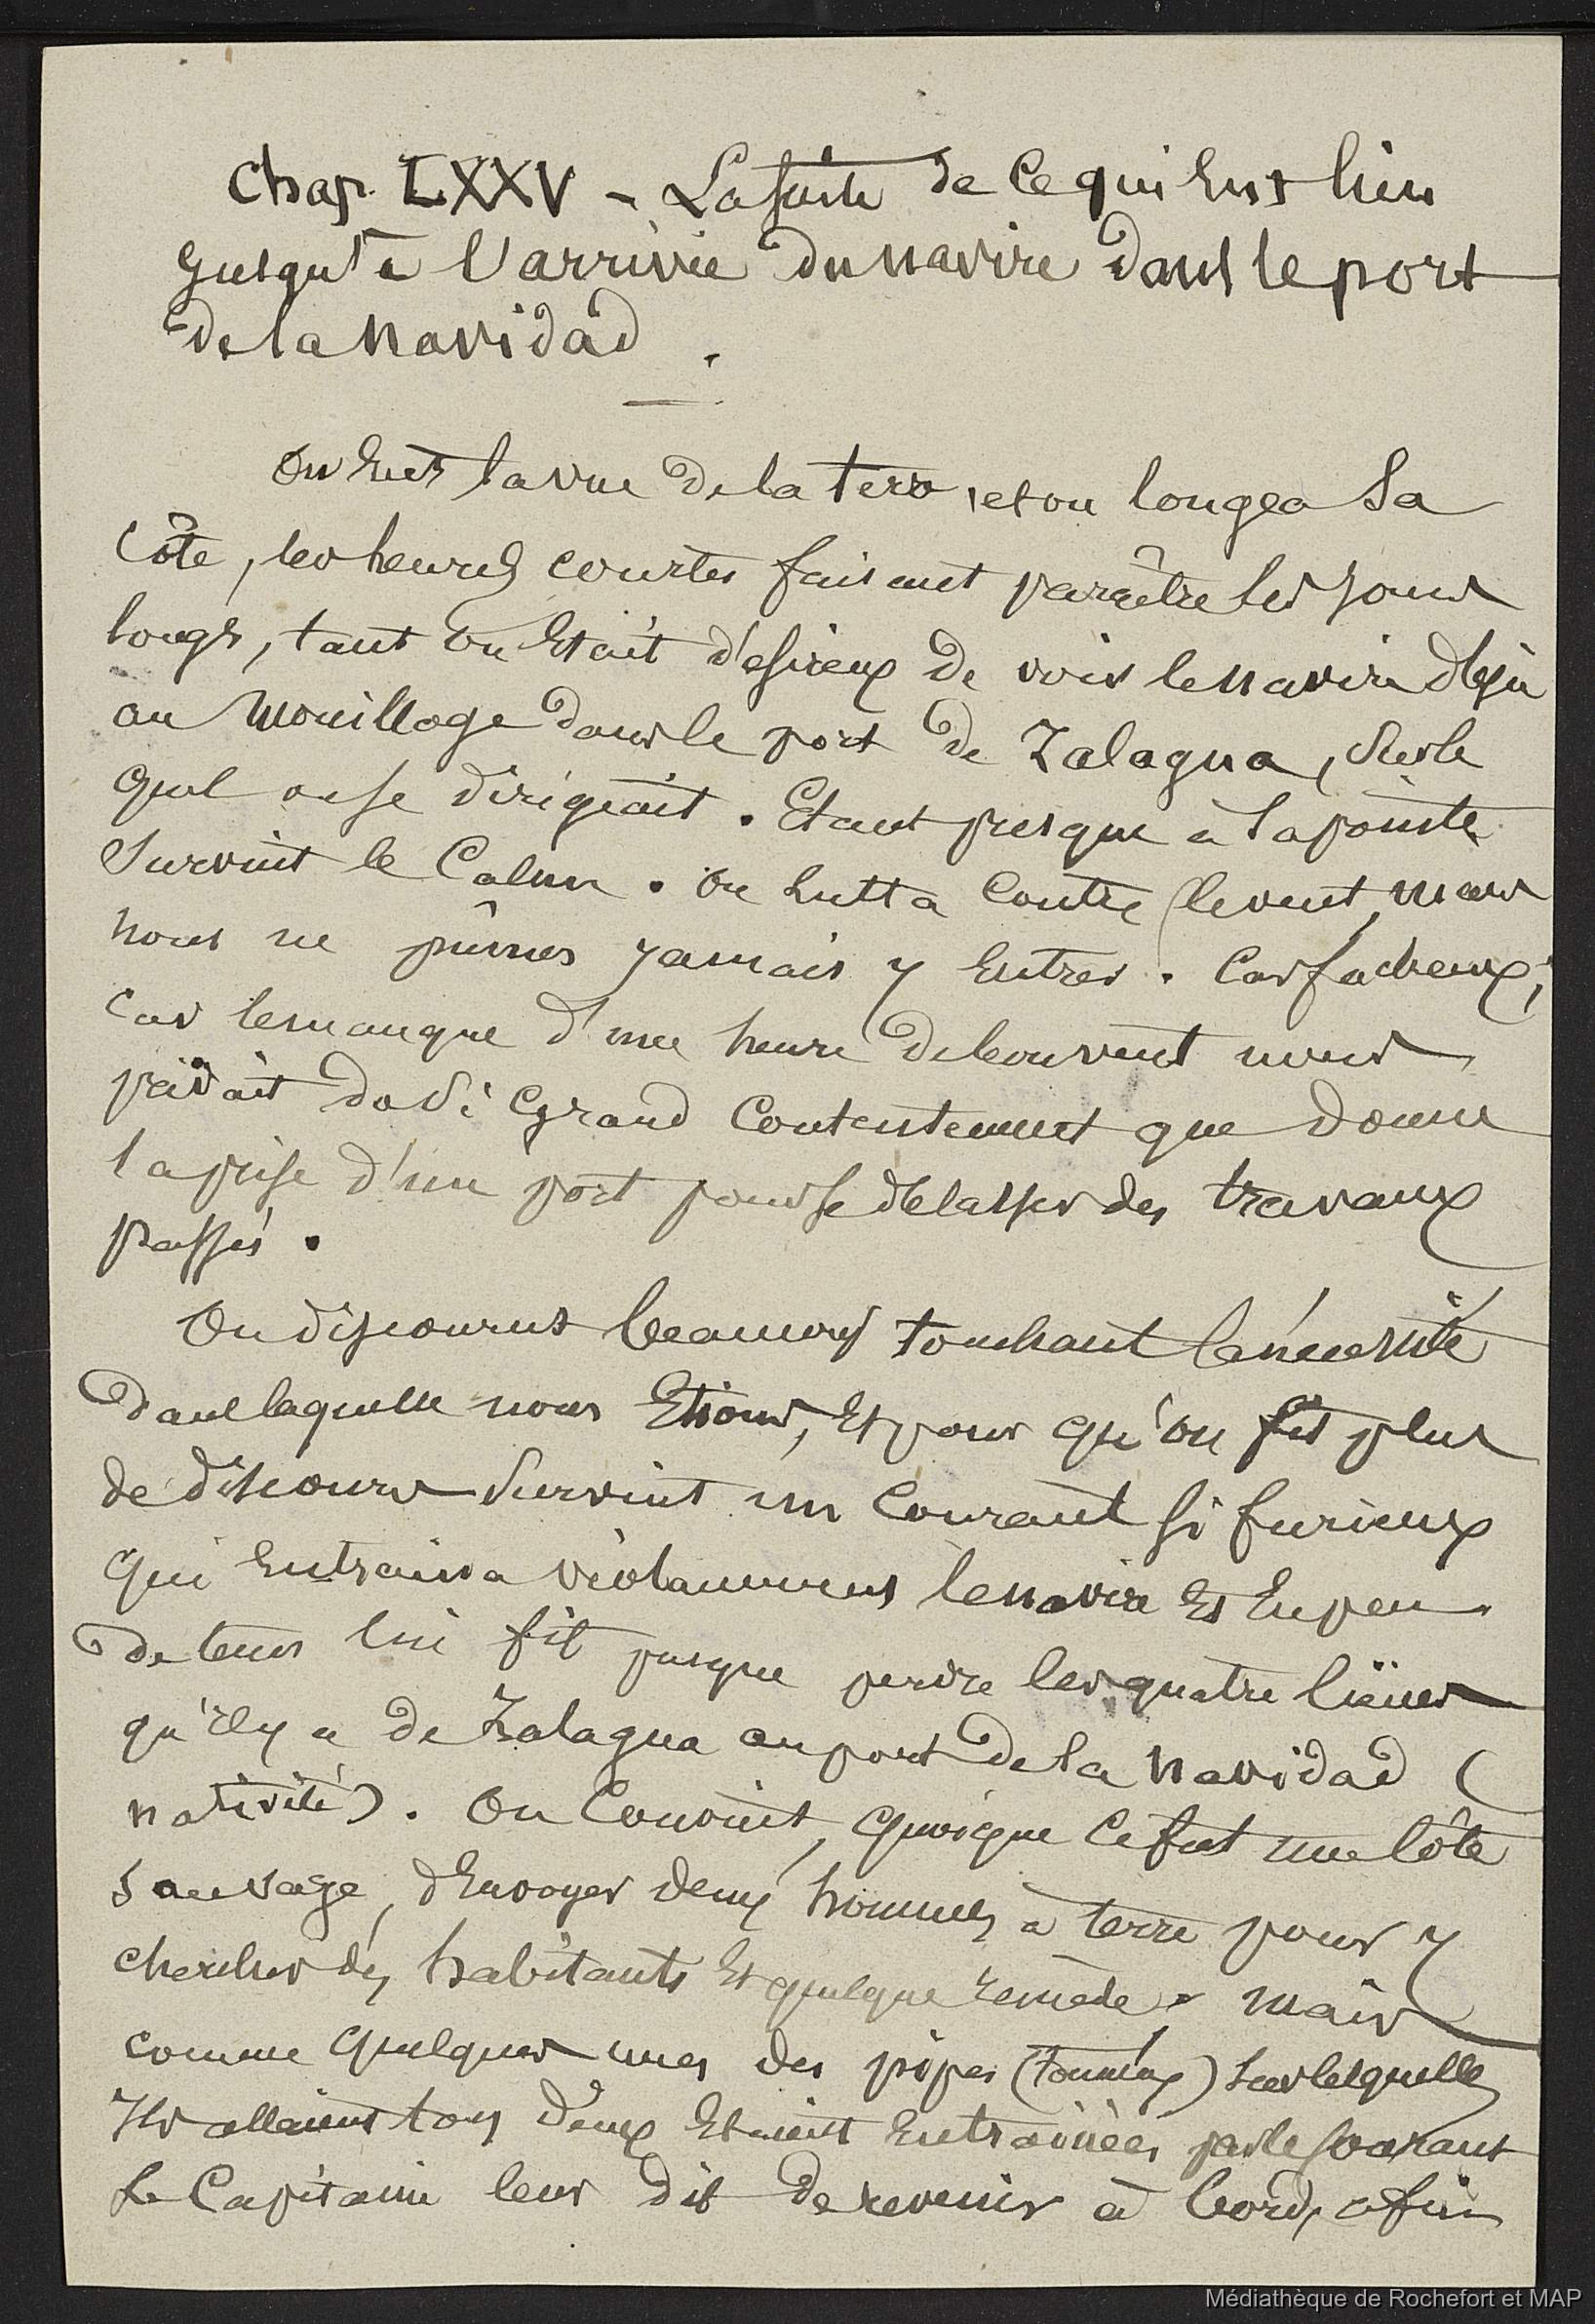 Chap. LXXV - La suite de ce qui eut lieu
jusqu'à l'arrivée du navire dans le port
de la Navidad.
On eut la vue de la terre, et on longea la
côte, les heures courtes faisant paraître les jours
longs, tant on était désireux de voir le navire déjà
au mouillage dans le port de Zalagua, sur le
quel on se dirigeait. Etant presque à la pointe
survint le calme. On lutta contre le vent, mais
nous ne pûmes jamais y entrer. Cas facheux;
car le manque d'une heure de bon vent nous
privait du si grand contentement que donne
la prise d'un port pour se délasser des travaux
passés.
On discourut beaucoup touchant la nécessité
dans laquelle nous étions, et pour qu'on fit plus
de discours survint un courant si furieux
qui entraina violamment le navire et en peu
de tems lui fit presque perdre les quatre lieues
qu'il y a de Zalagua au port de la Navidad (
nativité). On convint, quoique ce fut une côte
sauvage, d'envoyer deux hommes à terre pour y
chercher des habitants et quelque remède, mais
comme quelques unes des pipes (tonneaux) sur lesquelles
ils allaient tous deux étaient entrainées par le courant
le Capitaine leur dit de revenir à bord, afin
Médiathèque de Rochefort et MAP